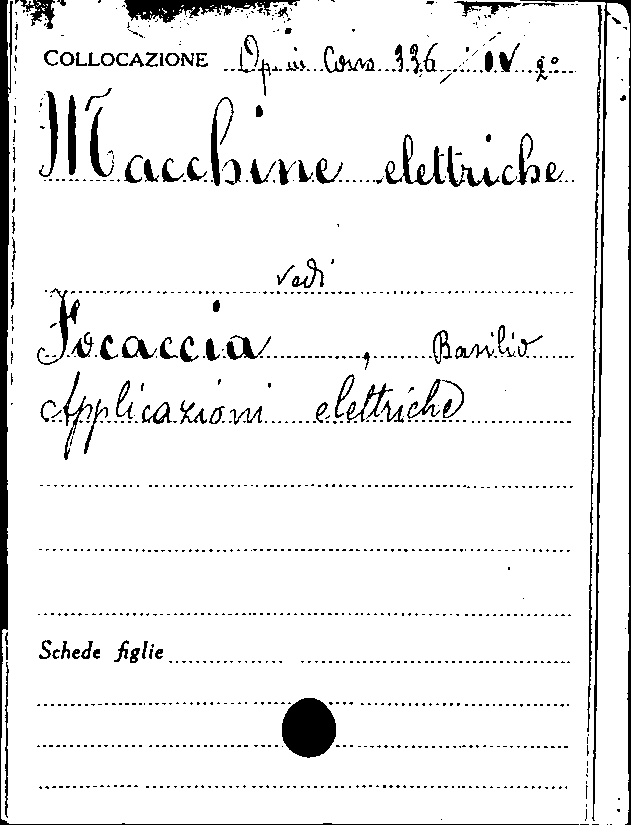 COLLOCAZIONE Op. in Cors 336 / IV 2°
Macchine elettriche
vedi
Focaccia, Basilio
Applicazioni elettriche
Schede figlie